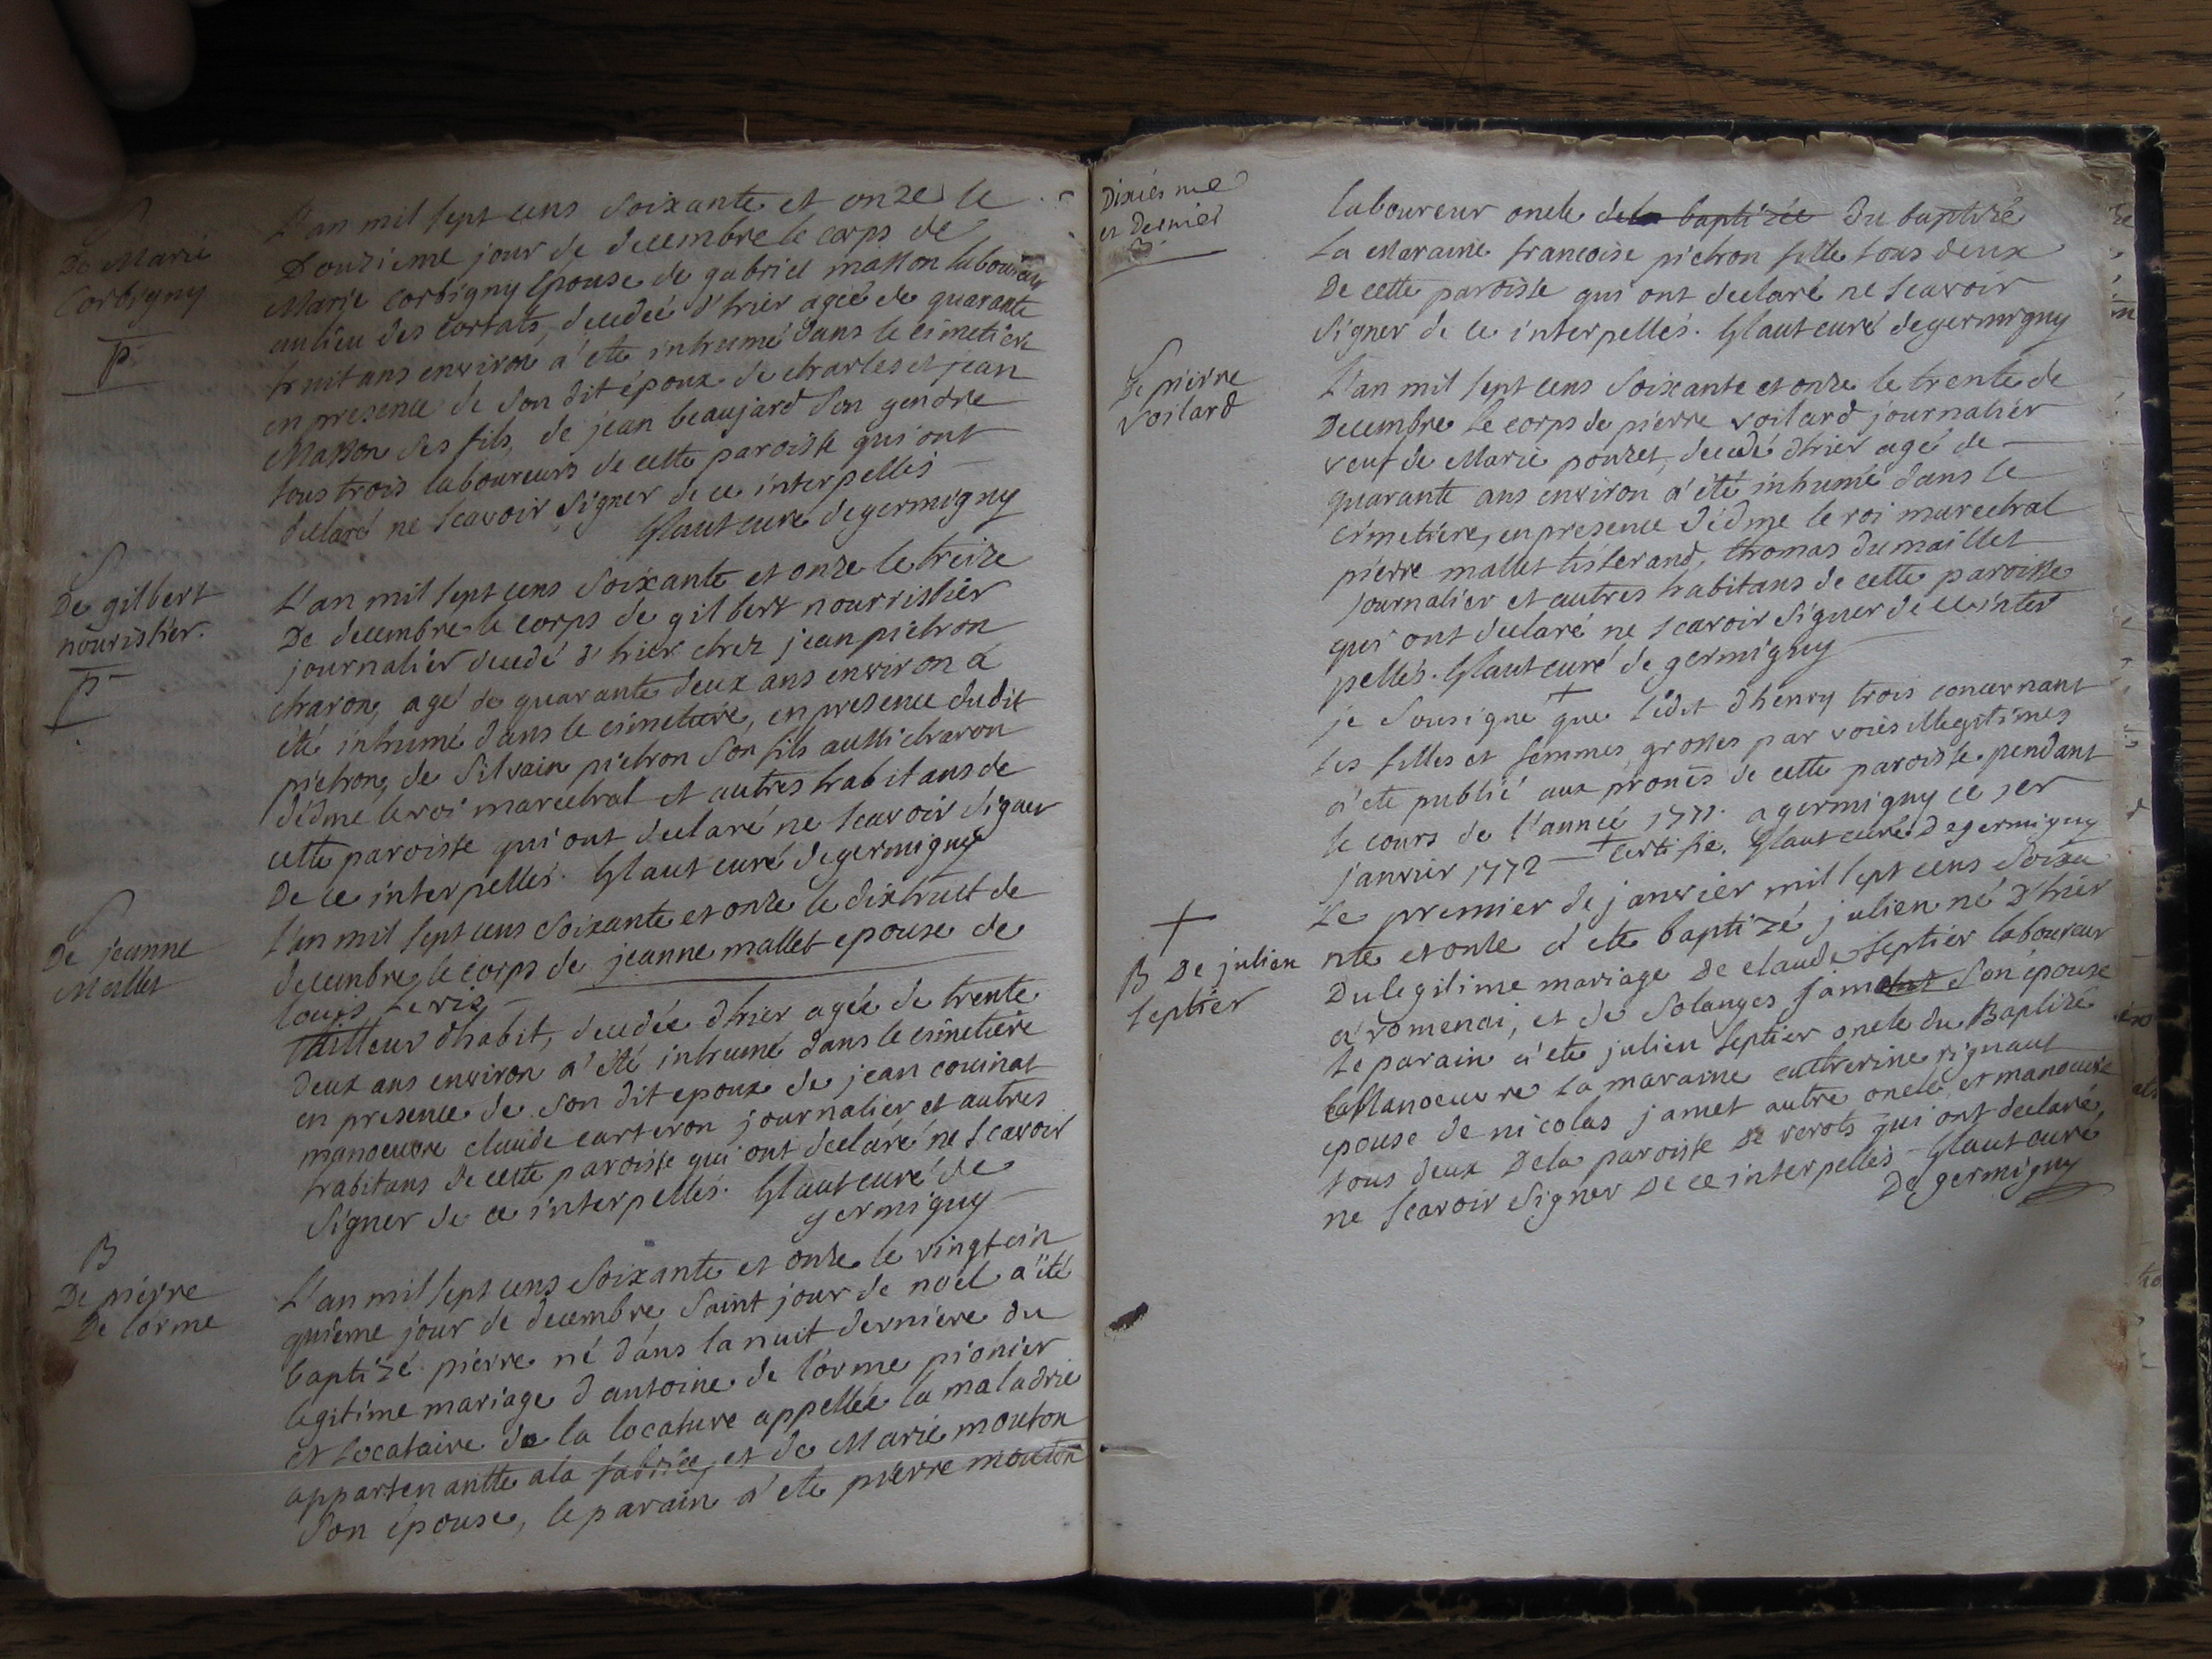 S
De Marie
Corbigny
P
L'an mil sept cens soixante et onze le
Douzieme jour de decembre le corps de
Marie corbigny Epouse de gabriel masson laboureur
au lieu des cortats, decedée d'hier agée de quarante
huit ans environ a été inhumé dans le cimetiere
en presence de son dit époux de charles et jean
Masson ses fils, de jean beaujard son gendre
tous trois laboureurs de cette paroisse qui ont
declaré ne scavoir signer de ce interpellés
Glaut curé de germigny
S
De gilbert
nourissier.
P
L'an mil sept cens soixante et onze le treize
De decembre le corps de gilbert nourrissier
journalier decedé d'hier chez jean pichon
charon, agé de quarante deux ans environ a
été inhumé dans le cimetiere, en presence dudit
pichon, de Silvain pichon son fils aussi charon
d'édme le roi maréchal et autres habitans de
cette paroisse qui ont declaré ne scavoir signer
De ce interpellés. Glaut curé de germigny
S
De jeanne
Mallet
L'an mil sept cens soixante et onze le dixhuit de
decembre le corps de jeanne mallet epouse de
louis
Tailleur d'habit, decedée d'hier agée de trente
Deux ans environ a été inhumé dans le cimetiere
en presence de son dit epoux de jean couinat
manoeuvre claude carteron journalier et autres
habitans de cette paroisse qui ont declaré ne scavoir
signer de ce interpellés. Glaut curé de
germigny
B
De pierre
De lorme
L'an mil sept cens soixante et onze le vingt cin
quieme jour de decembre saint jour de noel a été
baptizé pierre né dans la nuit derniere du
legitime mariage d'antoine de l'orme pionier
et locataire de la locature appellée la maladrie
appartenantte a la fabrice, et de Marie mouton
son épouse, le parain a été pierre mouton
Dixiés me
et Dernier
laboureur oncle dela baptizée du baptizé
la Maraine francoise pichon fille tous deux
De cette paroisse qui ont declaré ne scavoir
signer de ce interpellés. Glaut curé de germigny
S
De pierre
Voilard
L'an mil sept cens soixante et onze le trente de
Decembre le corps de pierre voilard journalier
veuf de Marie pouzet, decedé d'hier agé de
quarante ans environ a été inhumé dans le
cimetiere, en presence d'édme le roi marechal
pierre mallet tisserand, thomas dumaillet
journalier et autres habitans de cette paroisse
qui ont declaré ne scavoir signer de ce inter
pellés. Glaut curé de germigny
je sousigné + que l'édit d'henry trois concernant
les filles et femmes grosses par voies illegitimes
a été publié aux prones de cette paroisse pendant
le cours de l'année 1771. a germigny ce 1er
janvier 1772 + certifie. Glaut curé De germigny
+
B De julien
septier
Le premier de janvier mil sept cens soixa
nte et onze a été baptizé julien né d'hier
Du legitime mariage De claude septier laboureur
a romenai, et de solanges jamet son épouse
le parain a été julien septier oncle du Baptizé
Manoeuvre la maraine catherine rignaut
epouse de nicolas jamet autre oncle, et manoeuvre
tous deux Dela paroisse de verots qui ont declaré
ne scavoir signer De ce interpellés - Glaut curé
De germigny